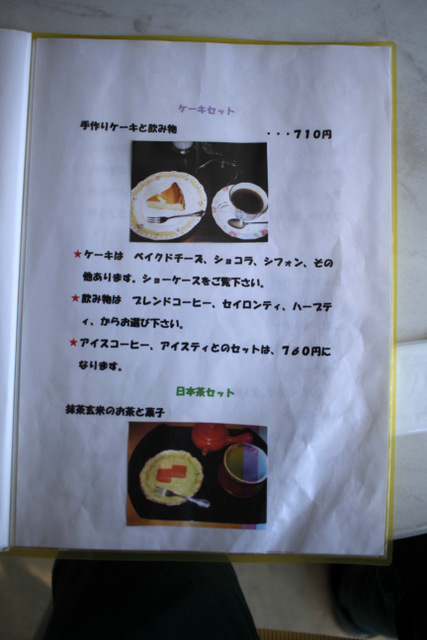 ケーキセット
手作りケーキと飲み物 ・・・710円
★ケーキは ベイクドチーズ、ショコラ、シフォン、その
他あります。ショーケースをご覧下さい。
★飲み物は ブレンドコーヒー、セイロンティ、ハーブテ
ィ、からお選び下さい。
★アイスコーヒー、アイスティとのセットは、760円に
なります。
日本茶セット
抹茶玄米のお茶と菓子